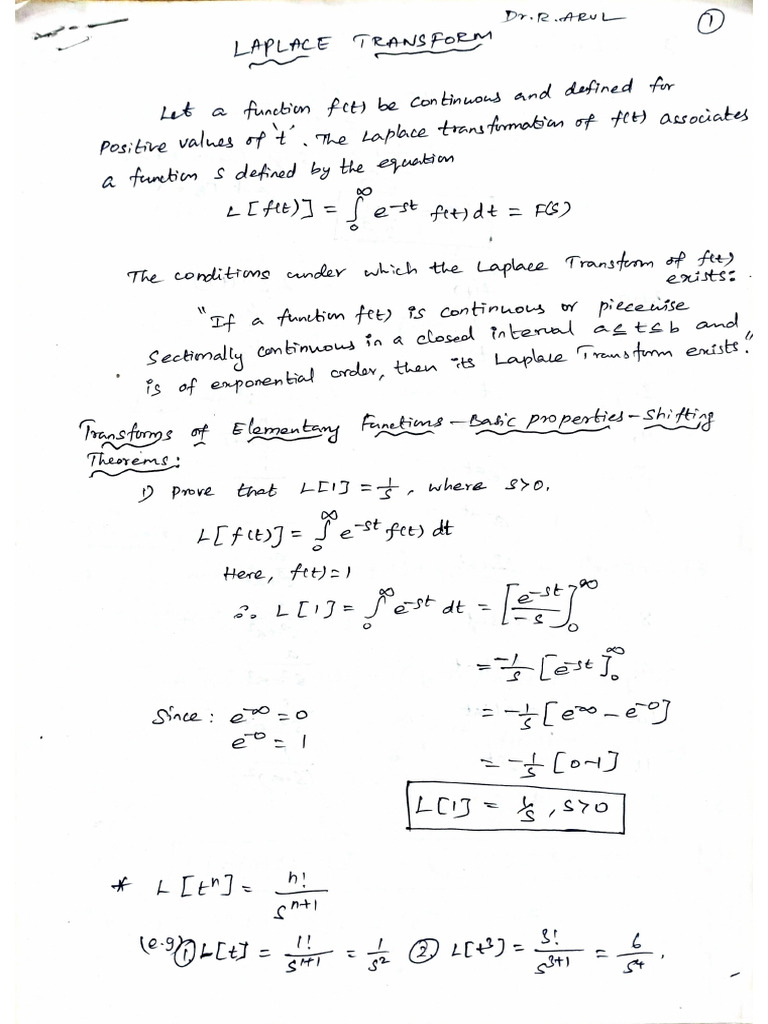 Dr. R. ARUL ①
LAPLACE TRANSFORM
Let a function f(t) be continuous and defined for
Positive values of 't'. The Laplace transformation of f(t) associates
a function s defined by the equation
L[f(t)] = ∫₀^∞ e^{-st} f(t) dt = F(s)
The conditions under which the Laplace Transform of f(t)
exists:
"If a function f(t) is continuous or piecewise
Sectionally continuous in a closed interval a≤t≤b and
is of exponential order, then its Laplace Transform exists."
Transforms of Elementary Functions - Basic properties - Shifting
Theorems:
1) Prove that L[1] = 1/s, where s>0.
L[f(t)] = ∫₀^∞ e^{-st} f(t) dt
Here, f(t)=1
∴ L[1] = ∫₀^∞ e^{-st} dt = [e^{-st}/-s]₀^∞
= -1/s [e^{-st}]₀^∞
Since: e^{-∞} = 0 = -1/s [e^{-∞} - e^{-0}]
e^{-0} = 1
= -1/s [0-1]
L[1] = 1/s, s>0
* L[tⁿ] = n!/s^{n+1}
(e.g) ① L[t] = 1!/s^{1+1} = 1/s² ② L[t³] = 3!/s^{3+1} = 6/s⁴.